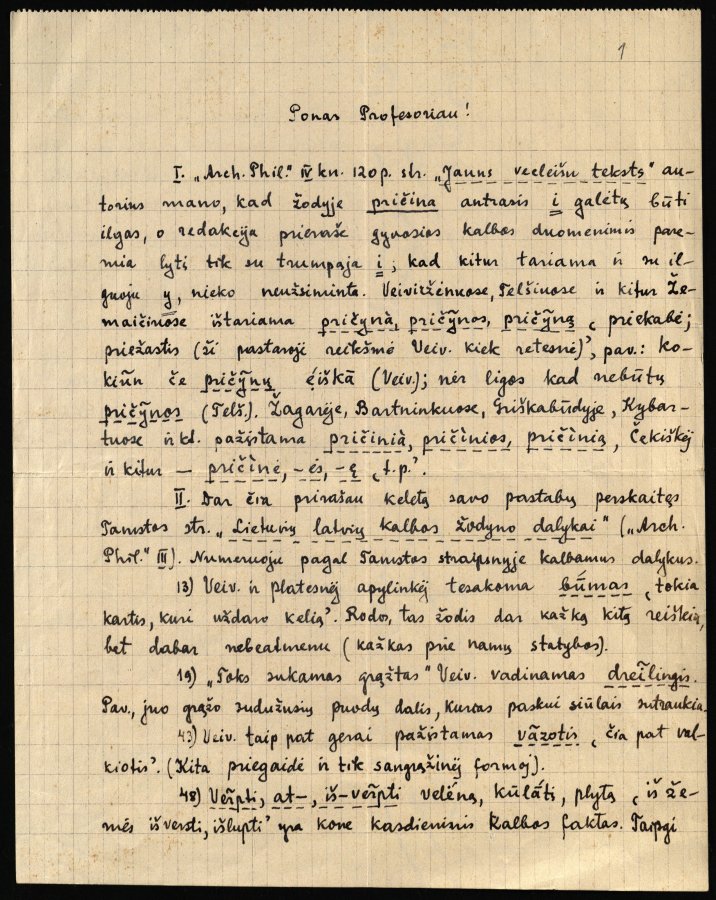 1
Ponas Profesoriau!
I. „Arch. Phil.“ IV kn. 120 p. str. „Jauns vecleišu teksts“ au-
torius mano, kad žodyje pričina antrasis i galėtų būti
ilgas, o redakcija prieraše gyvosios kalbos duomenimis pare-
mia lytį tik su trumpąja i; kad kitur tariama ir su il-
guoju y, nieko neužsiminta. Veiviržėnuose, Telšiuose ir kitur Že-
maičiuose ištariama pričynà, pričỹnos, pričỹną ‚priekabė;
priežastis (ši pastaroji reikšmė Veiv. kiek retesnė)’, pav.: ko-
kiũn če pričỹnų ẹ́iškā (Veiv.); nėr ligos kad nebūtų
pričỹnos (Telš.). Žagarėje, Bartninkuose, Griškabūdyje, Kybar-
tuose ir kt. pažįstama pričinià, pričìnios, pričìnią, Čekiškėj
ir kitur — pričìnė, -ės, -ę ‚t.p.’.
II. Dar čia prirašau keletą savo pastabų perskaitęs
Tamstos str. „Lietuvių latvių kalbos žodyno dalykai“ („Arch.
Phil.“ III). Numeruoju pagal Tamstos straipsnyje kalbamus dalykus.
13) Veiv. ir platesnėj apylinkėj tesakoma bū́mas ‚tokia
kartis, kuri uždaro kelią’. Rodos, tas žodis dar kažką kitą reiškia,
bet dabar nebeatmenu (kažkas prie namų statybos).
19) „Toks sukamas grąžtas“ Veiv. vadinamas dreĩlingis.
Pav., juo gręžo sudužusių puodų dalis, kurias paskui siūlais sutraukia.
43) Veiv. taip pat gerai pažįstamas vãzotis ‚čia pat val-
kiotis’. (Kita priegaidė ir tik sangrąžinėj formoj).
48) Ver̃pti, at-, iš-ver̃pti velėną, kūlãti, plytą ‚iš že-
mės išversti, išlupti’ yra kone kasdieninis kalbos faktas. Taipgi